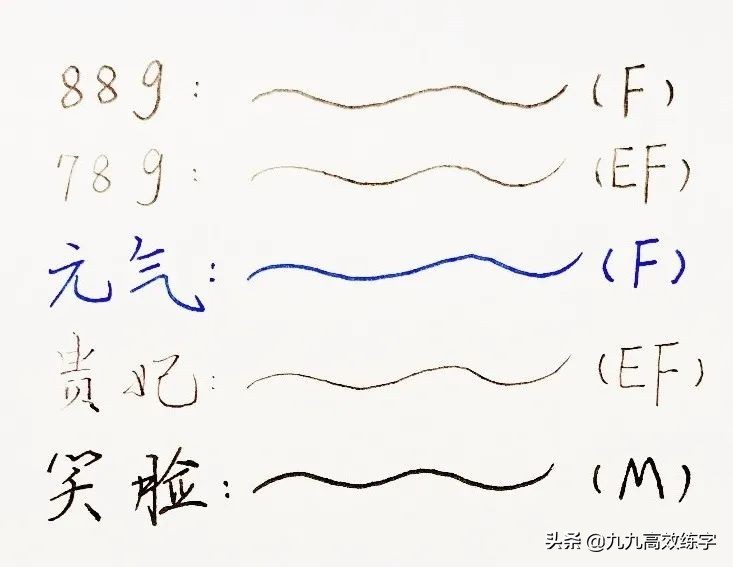 88g: (F)
78g: (EF)
元气: (F)
贵妃: (EF)
笑脸: (M)
头条 @九九高效练字